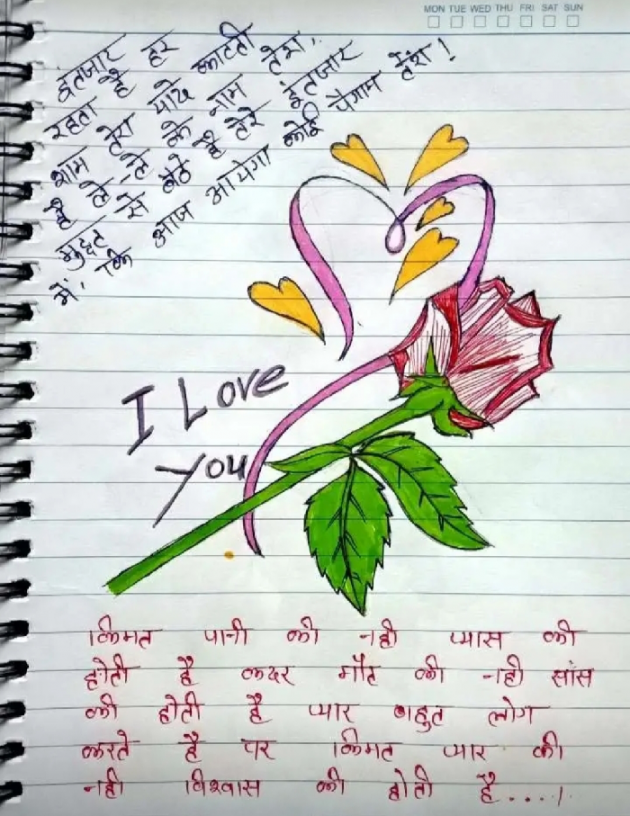 MON TUE WED THU FRI SAT SUN
इंतजार हर
शाम तेरा यादे काटती
रहता है
है ले-ले के नाम तेरा,
मुद्दत से बैठे है तेरे इंतजार
में, कि आज आयेगा कोई पैगाम तेरा!
I Love
You
किमत पानी की नही प्यास की
होती है कदर मौत की नही सांस
की होती है प्यार बहुत लोग
करते है पर किमत प्यार की
नही विश्वास की होती है....।